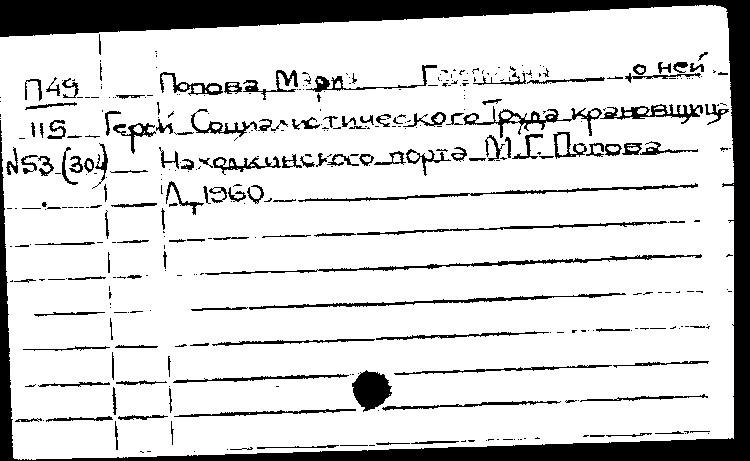 П49 Попова, Мария Георгиевна о ней
115 Герой Социалистического Труда крановщица
№53 (304) Находкинского порта М.Г. Попова
Л, 1960.